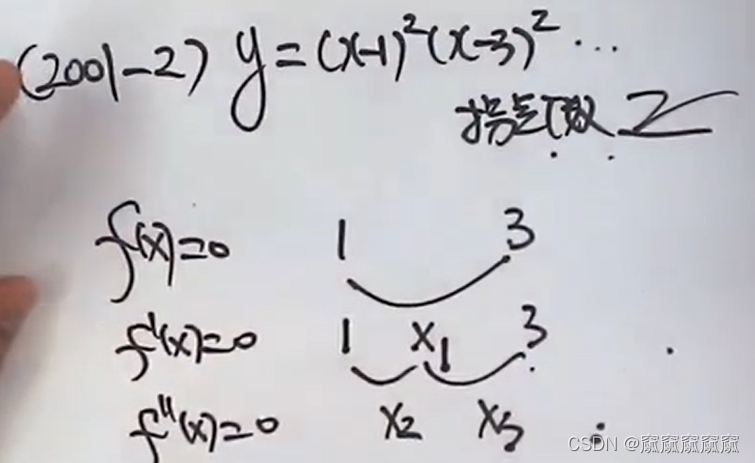 (2001-2) y=(x-1)²(x-3)² ...
拐点个数 2
f(x)=0 1 3
f'(x)=0 1 x₁ 3
f''(x)=0 x₂ x₃
CSDN @㵘㵘㵘㵘㵘